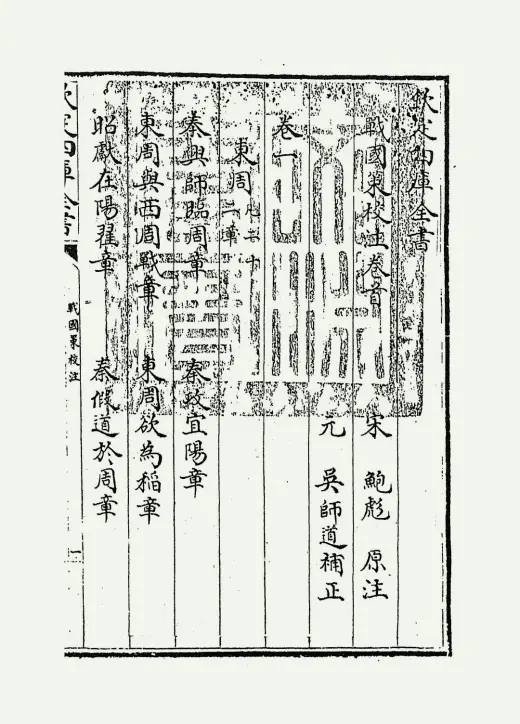 欽定四庫全書
戰國策校注卷首
宋 鮑彪 原注
元 吳師道補正
卷一
東周 凡二十二章
秦興師臨周章 秦攻宜陽章
東周與西周戰章 東周欲為稻章
昭獻在陽翟章 秦假道於周章
欽定四庫全書
戰國策校注
一